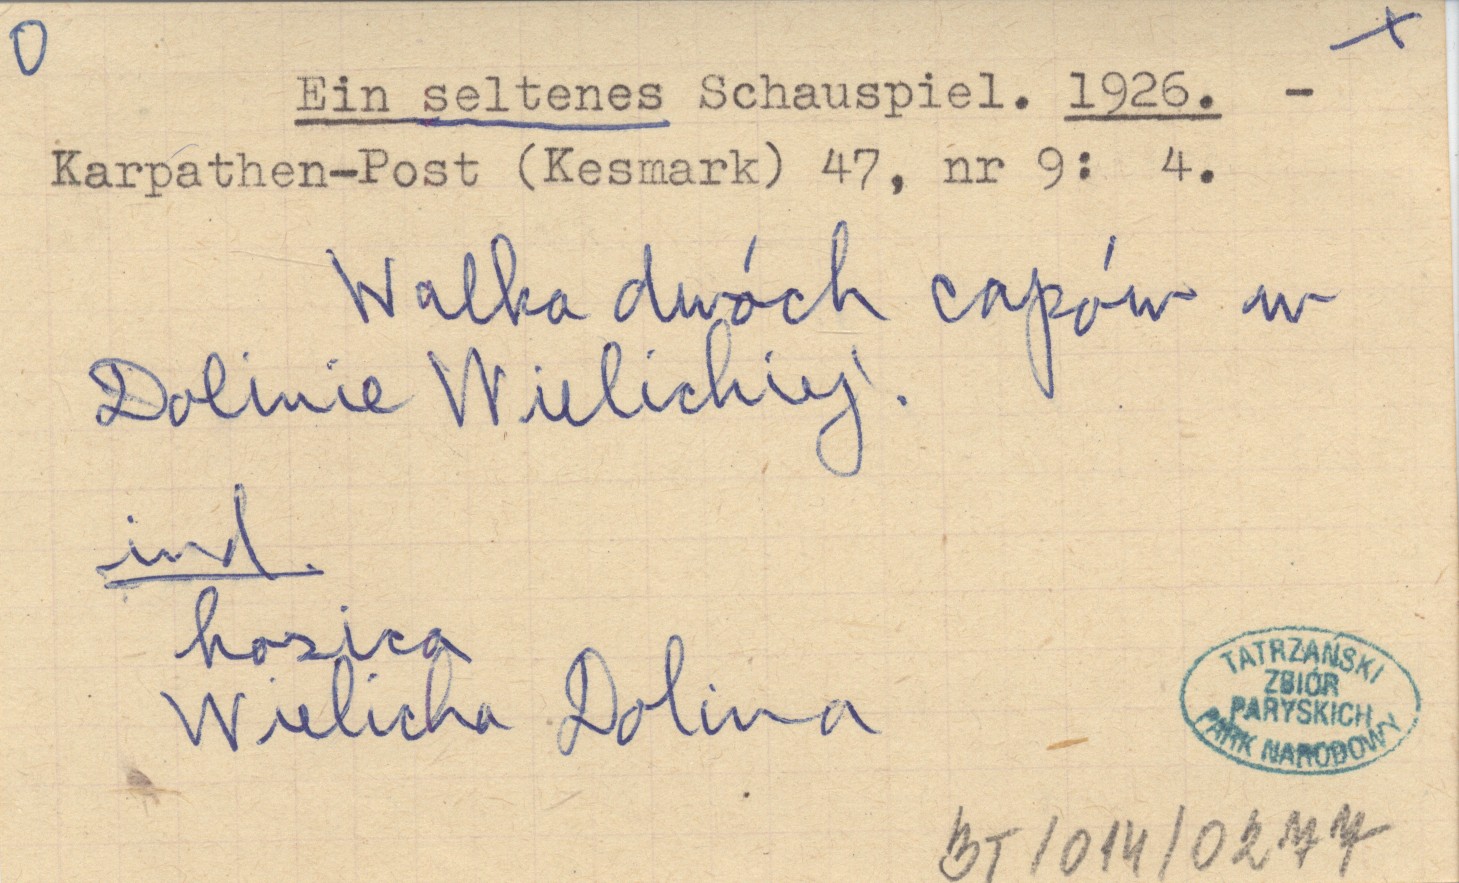 O
x
Ein seltenes Schauspiel. 1926. -
Karpathen-Post (Kesmark) 47, nr 9: 4.
Walka dwóch capów w
Dolinie Wielickiej.
ind.
kozica
Wielicka Dolina
TATRZAŃSKI
ZBIÓR
PARYSKICH
PARK NARODOWY
BT/014/0277